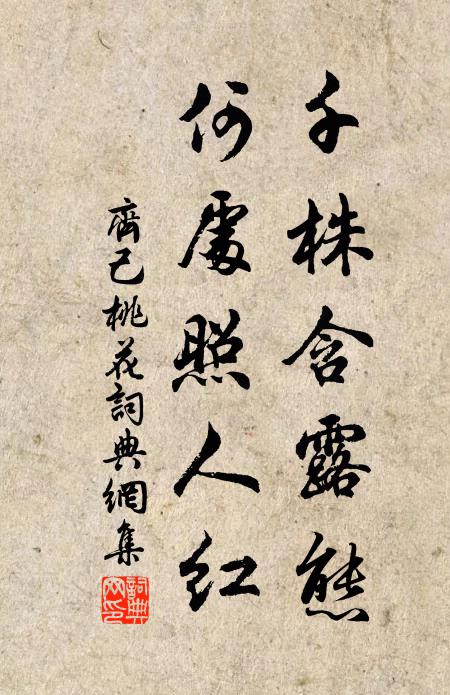 千株含露態
何處照人紅
齊己桃花詞典網集
詞典網印